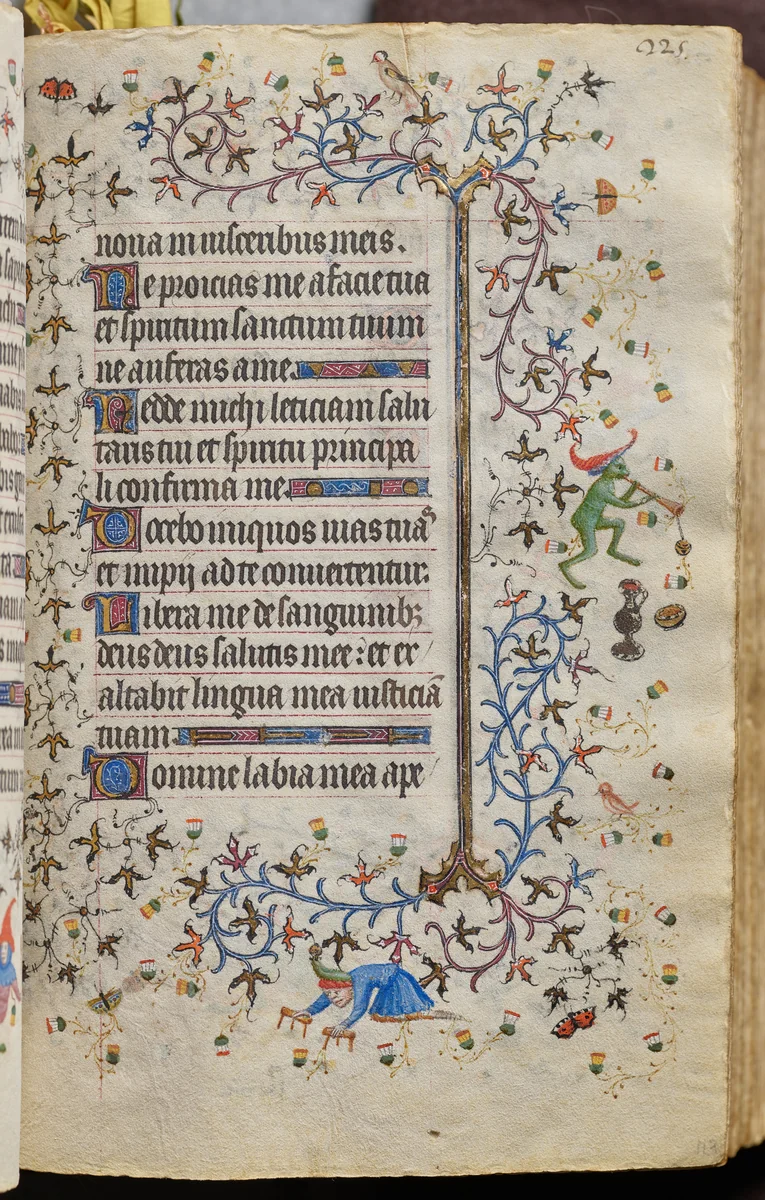 225.
noua in uisceribus meis.
Ne proicias me a facie tua
et spiritum sanctum tuum
ne auferas a me.
Redde michi leticiam salu
taris tui et spiritu principa
li confirma me.
Docebo iniquos uias tuas
et impij ad te conuertentur.
Libera me de sanguinibȝ
deus deus salutis mee: et ex
altabit lingua mea iusticiā
tuam.
Domine labia mea ape
113